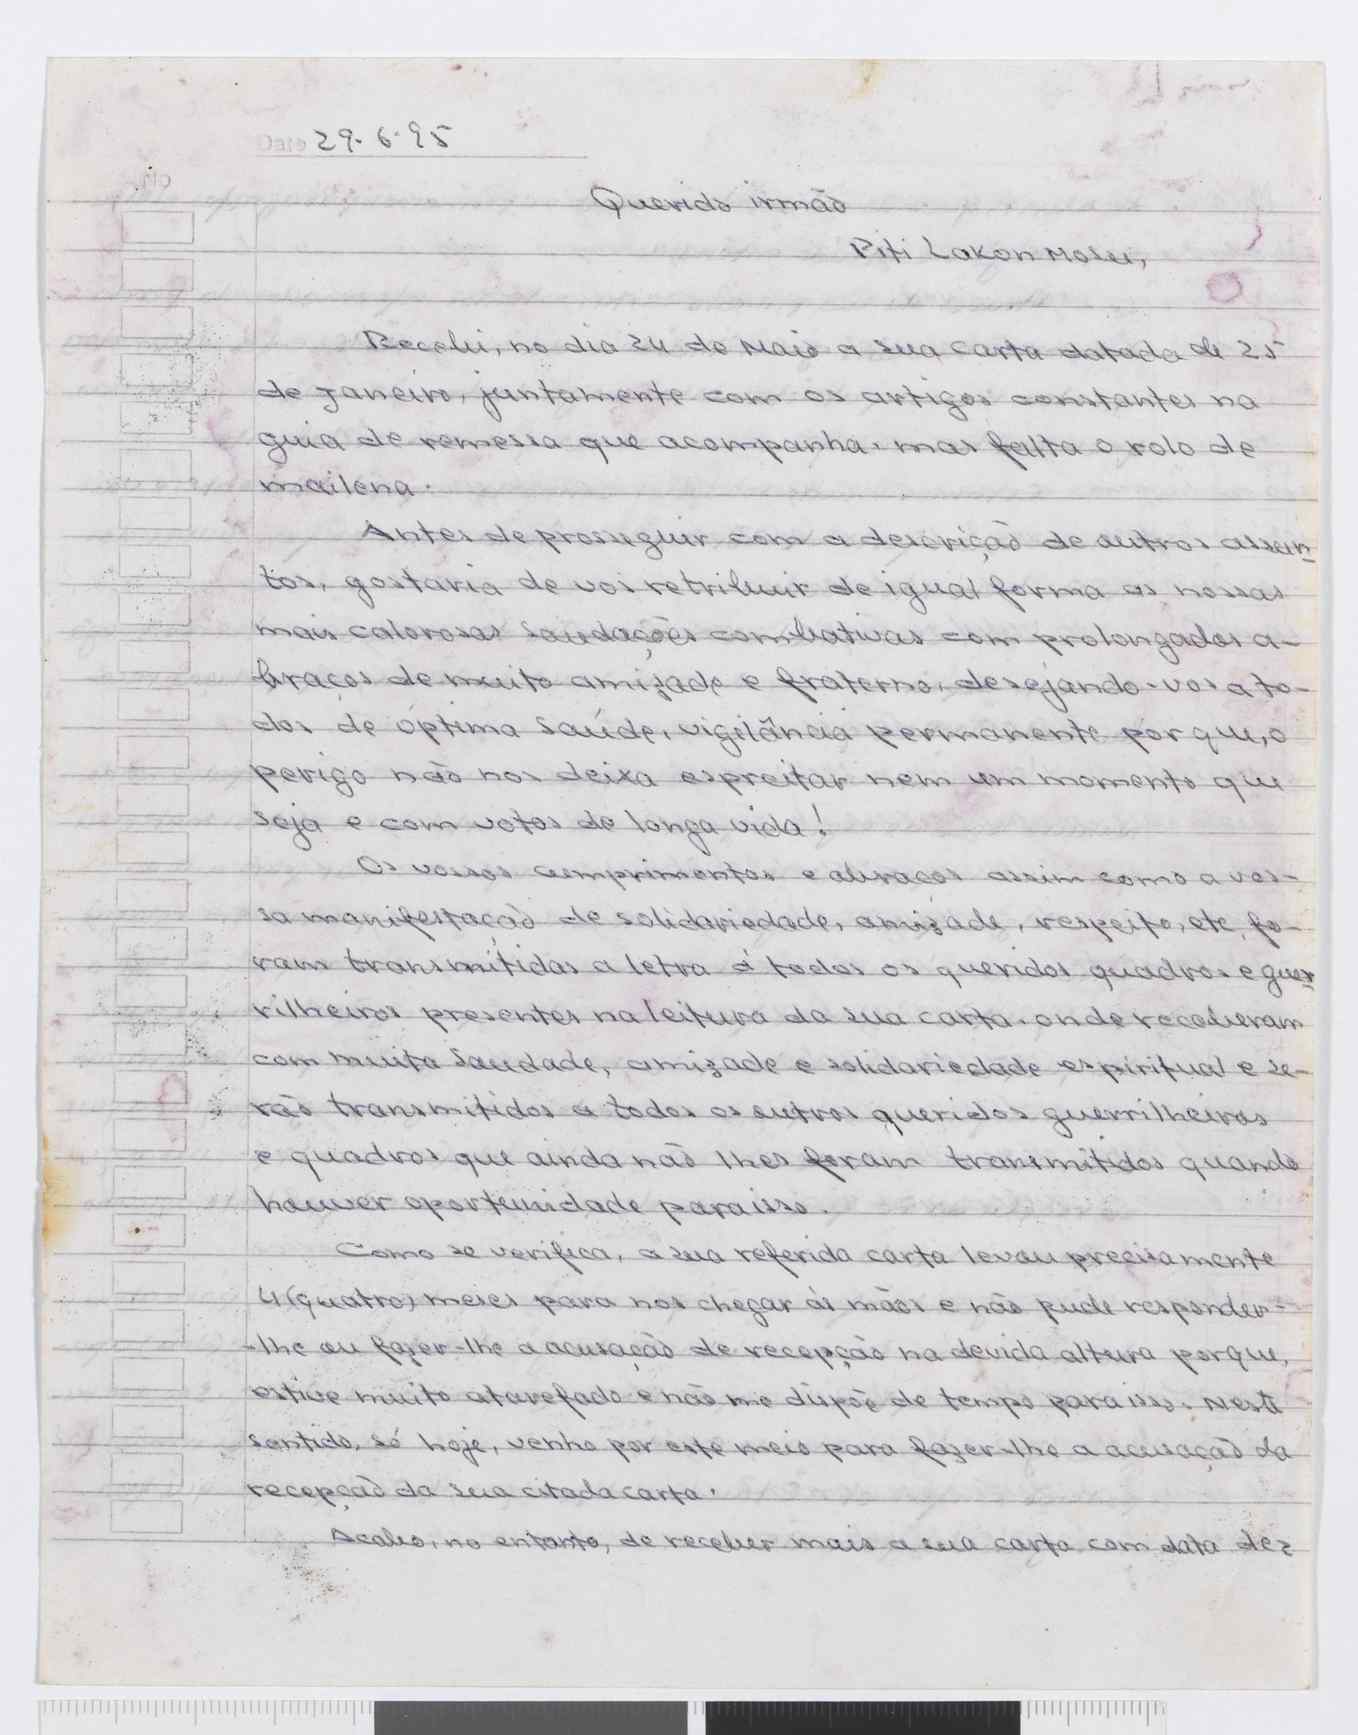 29.6.95
Querido irmão
Piti Lakon Mosu,
Recebi, no dia 24 de Maio a sua carta datada de 25
de Janeiro, juntamente com os artigos constantes na
guia de remessa que acompanha. mas falta o rolo de
mailena.
Antes de prosseguir com a descrição de outros assun-
tos, gostaria de vos retribuir de igual forma as nossas
mais calorosas saudações combativas com prolongados a-
braços de muito amizade e fraterno, desejando-vos a to-
dos de óptima saúde, vigilância permanente porque, o
perigo não nos deixa espreitar nem um momento que
seja e com votos de longa vida!
Os vossos cumprimentos e abraços assim como a vos-
sa manifestação de solidariedade, amizade, respeito, etc, fo-
ram transmitidas a letra á todos os queridos quadros e guer-
rilheiros presentes na leitura da sua carta. onde receberam
com muita saudade, amizade e solidariedade espiritual e se-
rão transmitidos a todos os outros queridos guerrilheiros
e quadros que ainda não lhes foram transmitidos quando
houver oportunidade para isso.
Como se verifica, a sua referida carta levou precisamente
4 (quatro) meses para nos chegar às mãos e não pude responder-
-lhe ou fazer-lhe a acusação de recepção na devida altura porque,
estive muito atarefado e não me dispôs de tempo para isso. Neste
sentido, só hoje, venho por este meio para fazer-lhe a acusação da
recepção da sua citada carta.
Acabo, no entanto, de receber mais a sua carta com data de 2